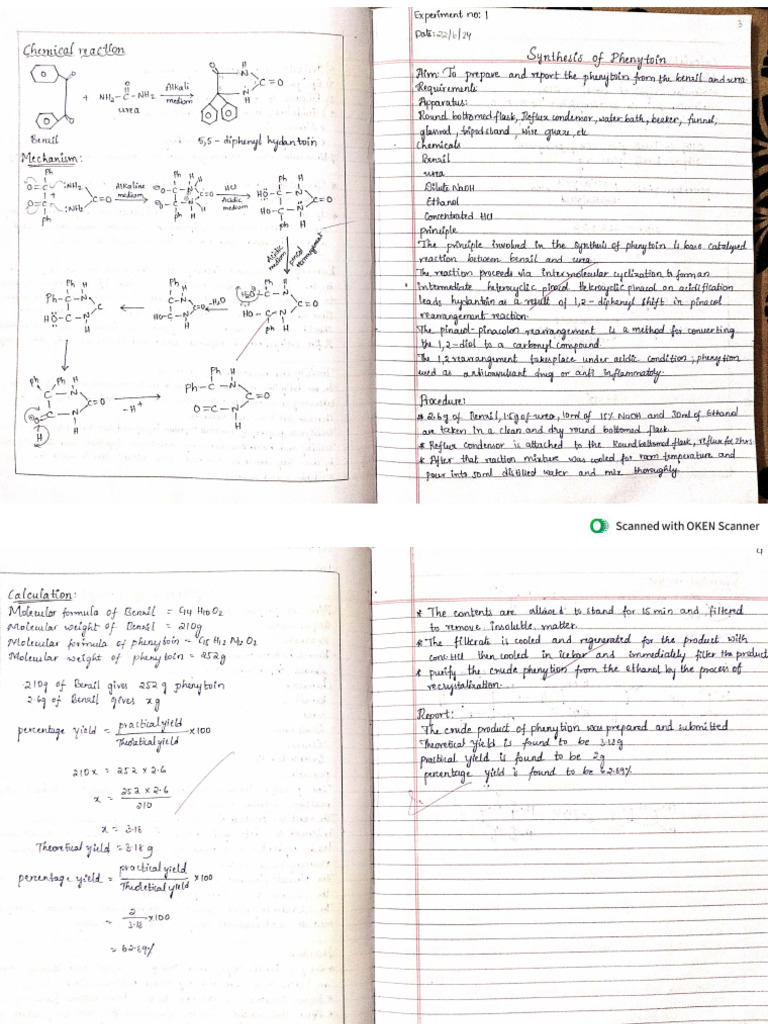 Chemical reaction
Alkali
medium
NH2-C-NH2
urea
Benzil
5,5-diphenyl hydantoin
Mechanism:
Alkaline
medium
HCl
Acidic
medium
Acidic
medium
pinacol
rearrangement
-H2O
-H+
Experiment no: 1
3
Date: 22/6/24
Synthesis of Phenytoin
Aim: To prepare and report the phenytoin from the benzil and urea
Requirements
Apparatus:
Round bottomed flask, Reflux condensor, water bath, beaker, funnel,
glassrod, tripod stand, wire guaze, etc
Chemicals
Benzil
urea
Dilute NaOH
Ethanol
Concentrated HCl
principle
The principle involved in the synthesis of phenytoin is base catalysed
reaction between benzil and urea.
The reaction proceeds via intermolecular cyclization to form an
intermediate heterocyclic pinacol. Heterocyclic pinacol on acidification
leads hydantoin as a result of 1,2-diphenyl shift in pinacol
rearrangement reaction.
The pinacol-pinacolon rearrangement is a method for converting
the 1,2-diol to a carbonyl compound.
The 1,2 rearrangement takes place under acidic condition; phenytion
used as anticonvulsant drug or anti inflammatoly.
Procedure:
* 2.6g of Benzil, 1.5g of urea, 10ml of 15% NaOH and 30ml of Ethanol
are taken in a clean and dry round bottomed flask
* Reflux condensor is attached to the Round bottomed flask, reflux for 2 hrs
* After that raction mixture was cooled for room temperature and
pour into 50ml distilled water and mix thoroughly.
Scanned with OKEN Scanner
4
Calculation:
Molecular formula of Benzil = C14 H10 O2
Molecular weight of Benzil = 210g
Molecular formula of phenytoin = C15 H12 N2 O2
Molecular weight of phenytoin = 252g
210g of Benzil gives 252 g phenytoin
2.6g of Benzil gives xg
percentage yield = practical yield / Theoletical yield × 100
210x = 252 × 2.6
x = 252 × 2.6 / 210
x = 3.18
Theoretical yield = 3.18 g
percentage yield = practical yield / Theoletical yield × 100
= 2 / 3.18 × 100
= 62.89%
* The contents are allowed to stand for 15 min and filtered
to remove insoluble matter.
* The filterate is cooled and regenerated for the product with
conc. HCl then cooled in icebar and immediately filter the product
* purify the crude phenytion from the ethanol by the process of
recrystalization.
Report:
The crude product of phenytion was prepared and submitted
Theoretical yield is found to be 3.18g
practical yield is found to be 2g
percentage yield is found to be 62.89%